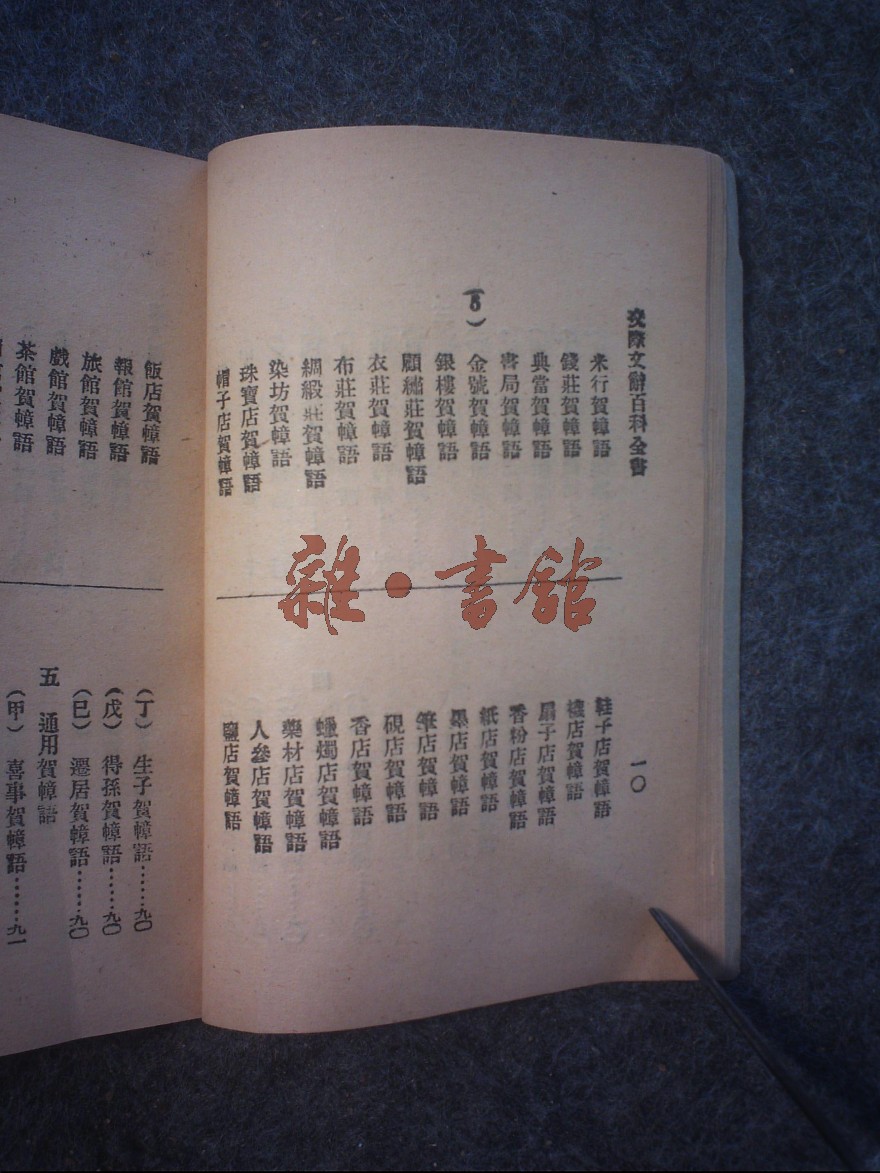 交際文辭百科全書
米行賀幛語
錢莊賀幛語
典當賀幛語
書局賀幛語
金號賀幛語
銀樓賀幛語
顧繡莊賀幛語
衣莊賀幛語
布莊賀幛語
綢緞莊賀幛語
染坊賀幛語
珠寶店賀幛語
帽子店賀幛語
一〇
鞋子店賀幛語
襪店賀幛語
扇子店賀幛語
香粉店賀幛語
紙店賀幛語
墨店賀幛語
筆店賀幛語
硯店賀幛語
香店賀幛語
蠟燭店賀幛語
藥材店賀幛語
人參店賀幛語
鹽店賀幛語
雜·書館
飯店賀幛語
報館賀幛語
旅館賀幛語
戲館賀幛語
茶館賀幛語
(丁) 生子賀幛語……九〇
(戊) 得孫賀幛語……九〇
(巳) 遷居賀幛語……九〇
五 通用賀幛語
(甲) 喜事賀幛語……九一